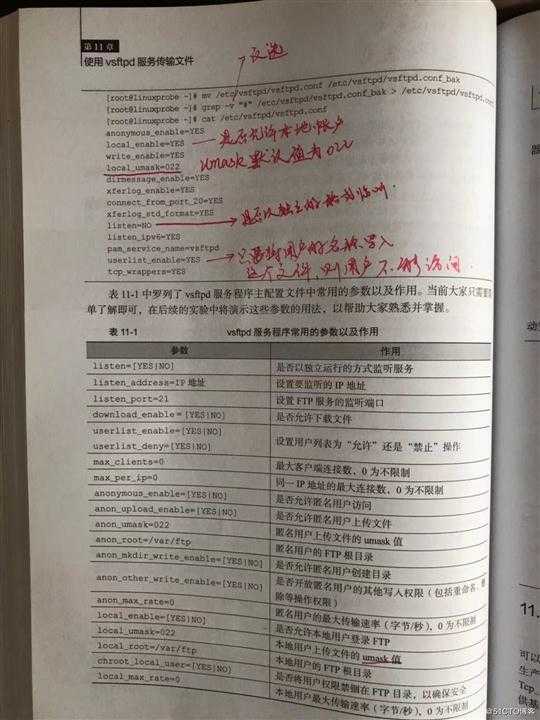 反选
第 11 章
使用 vsftpd 服务传输文件
[root@linuxprobe ~]# mv /etc/vsftpd/vsftpd.conf /etc/vsftpd/vsftpd.conf_bak
[root@linuxprobe ~]# grep -v "#" /etc/vsftpd/vsftpd.conf_bak > /etc/vsftpd/vsftpd.conf
[root@linuxprobe ~]# cat /etc/vsftpd/vsftpd.conf
anonymous_enable=YES
local_enable=YES 是否允许本地账户
write_enable=YES
local_umask=022 umask 默认值为 022
dirmessage_enable=YES
xferlog_enable=YES
connect_from_port_20=YES
xferlog_std_format=YES
listen=NO 是否以独立的
listen_ipv6=YES
pam_service_name=vsftpd
userlist_enable=YES 用户的名称写入
tcp_wrappers=YES 这个文件,则用户不能访问.
表 11-1 中罗列了 vsftpd 服务程序主配置文件中常用的参数以及作用。当前大家只需要简
单了解即可,在后续的实验中将演示这些参数的用法,以帮助大家熟悉并掌握。
表 11-1 vsftpd 服务程序常用的参数以及作用
参数 作用
listen=[YES|NO] 是否以独立运行的方式监听服务
listen_address=IP 地址 设置要监听的 IP 地址
listen_port=21 设置 FTP 服务的监听端口
download_enable=[YES|NO] 是否允许下载文件
userlist_enable=[YES|NO]
userlist_deny=[YES|NO] 设置用户列表为“允许”还是“禁止”操作
max_clients=0 最大客户端连接数,0 为不限制
max_per_ip=0 同一 IP 地址的最大连接数,0 为不限制
anonymous_enable=[YES|NO] 是否允许匿名用户访问
anon_upload_enable=[YES|NO] 是否允许匿名用户上传文件
anon_umask=022 匿名用户上传文件的 umask 值
anon_root=/var/ftp 匿名用户的 FTP 根目录
anon_mkdir_write_enable=[YES|NO] 是否允许匿名用户创建目录
anon_other_write_enable=[YES|NO] 是否开放匿名用户的其他写入权限(包括重命名、删
除等操作权限)
anon_max_rate=0 匿名用户的最大传输速率(字节/秒),0 为不限制
local_enable=[YES|NO] 是否允许本地用户登录 FTP
local_umask=022 本地用户上传文件的 umask 值
local_root=/var/ftp 本地用户的 FTP 根目录
chroot_local_user=[YES|NO] 是否将用户权限禁锢在 FTP 目录,以确保安全
local_max_rate=0 本地用户最大传输速率(字节/秒),0 为不限制
11.
可以
生产
Tcp_
供基
@51CTO博客